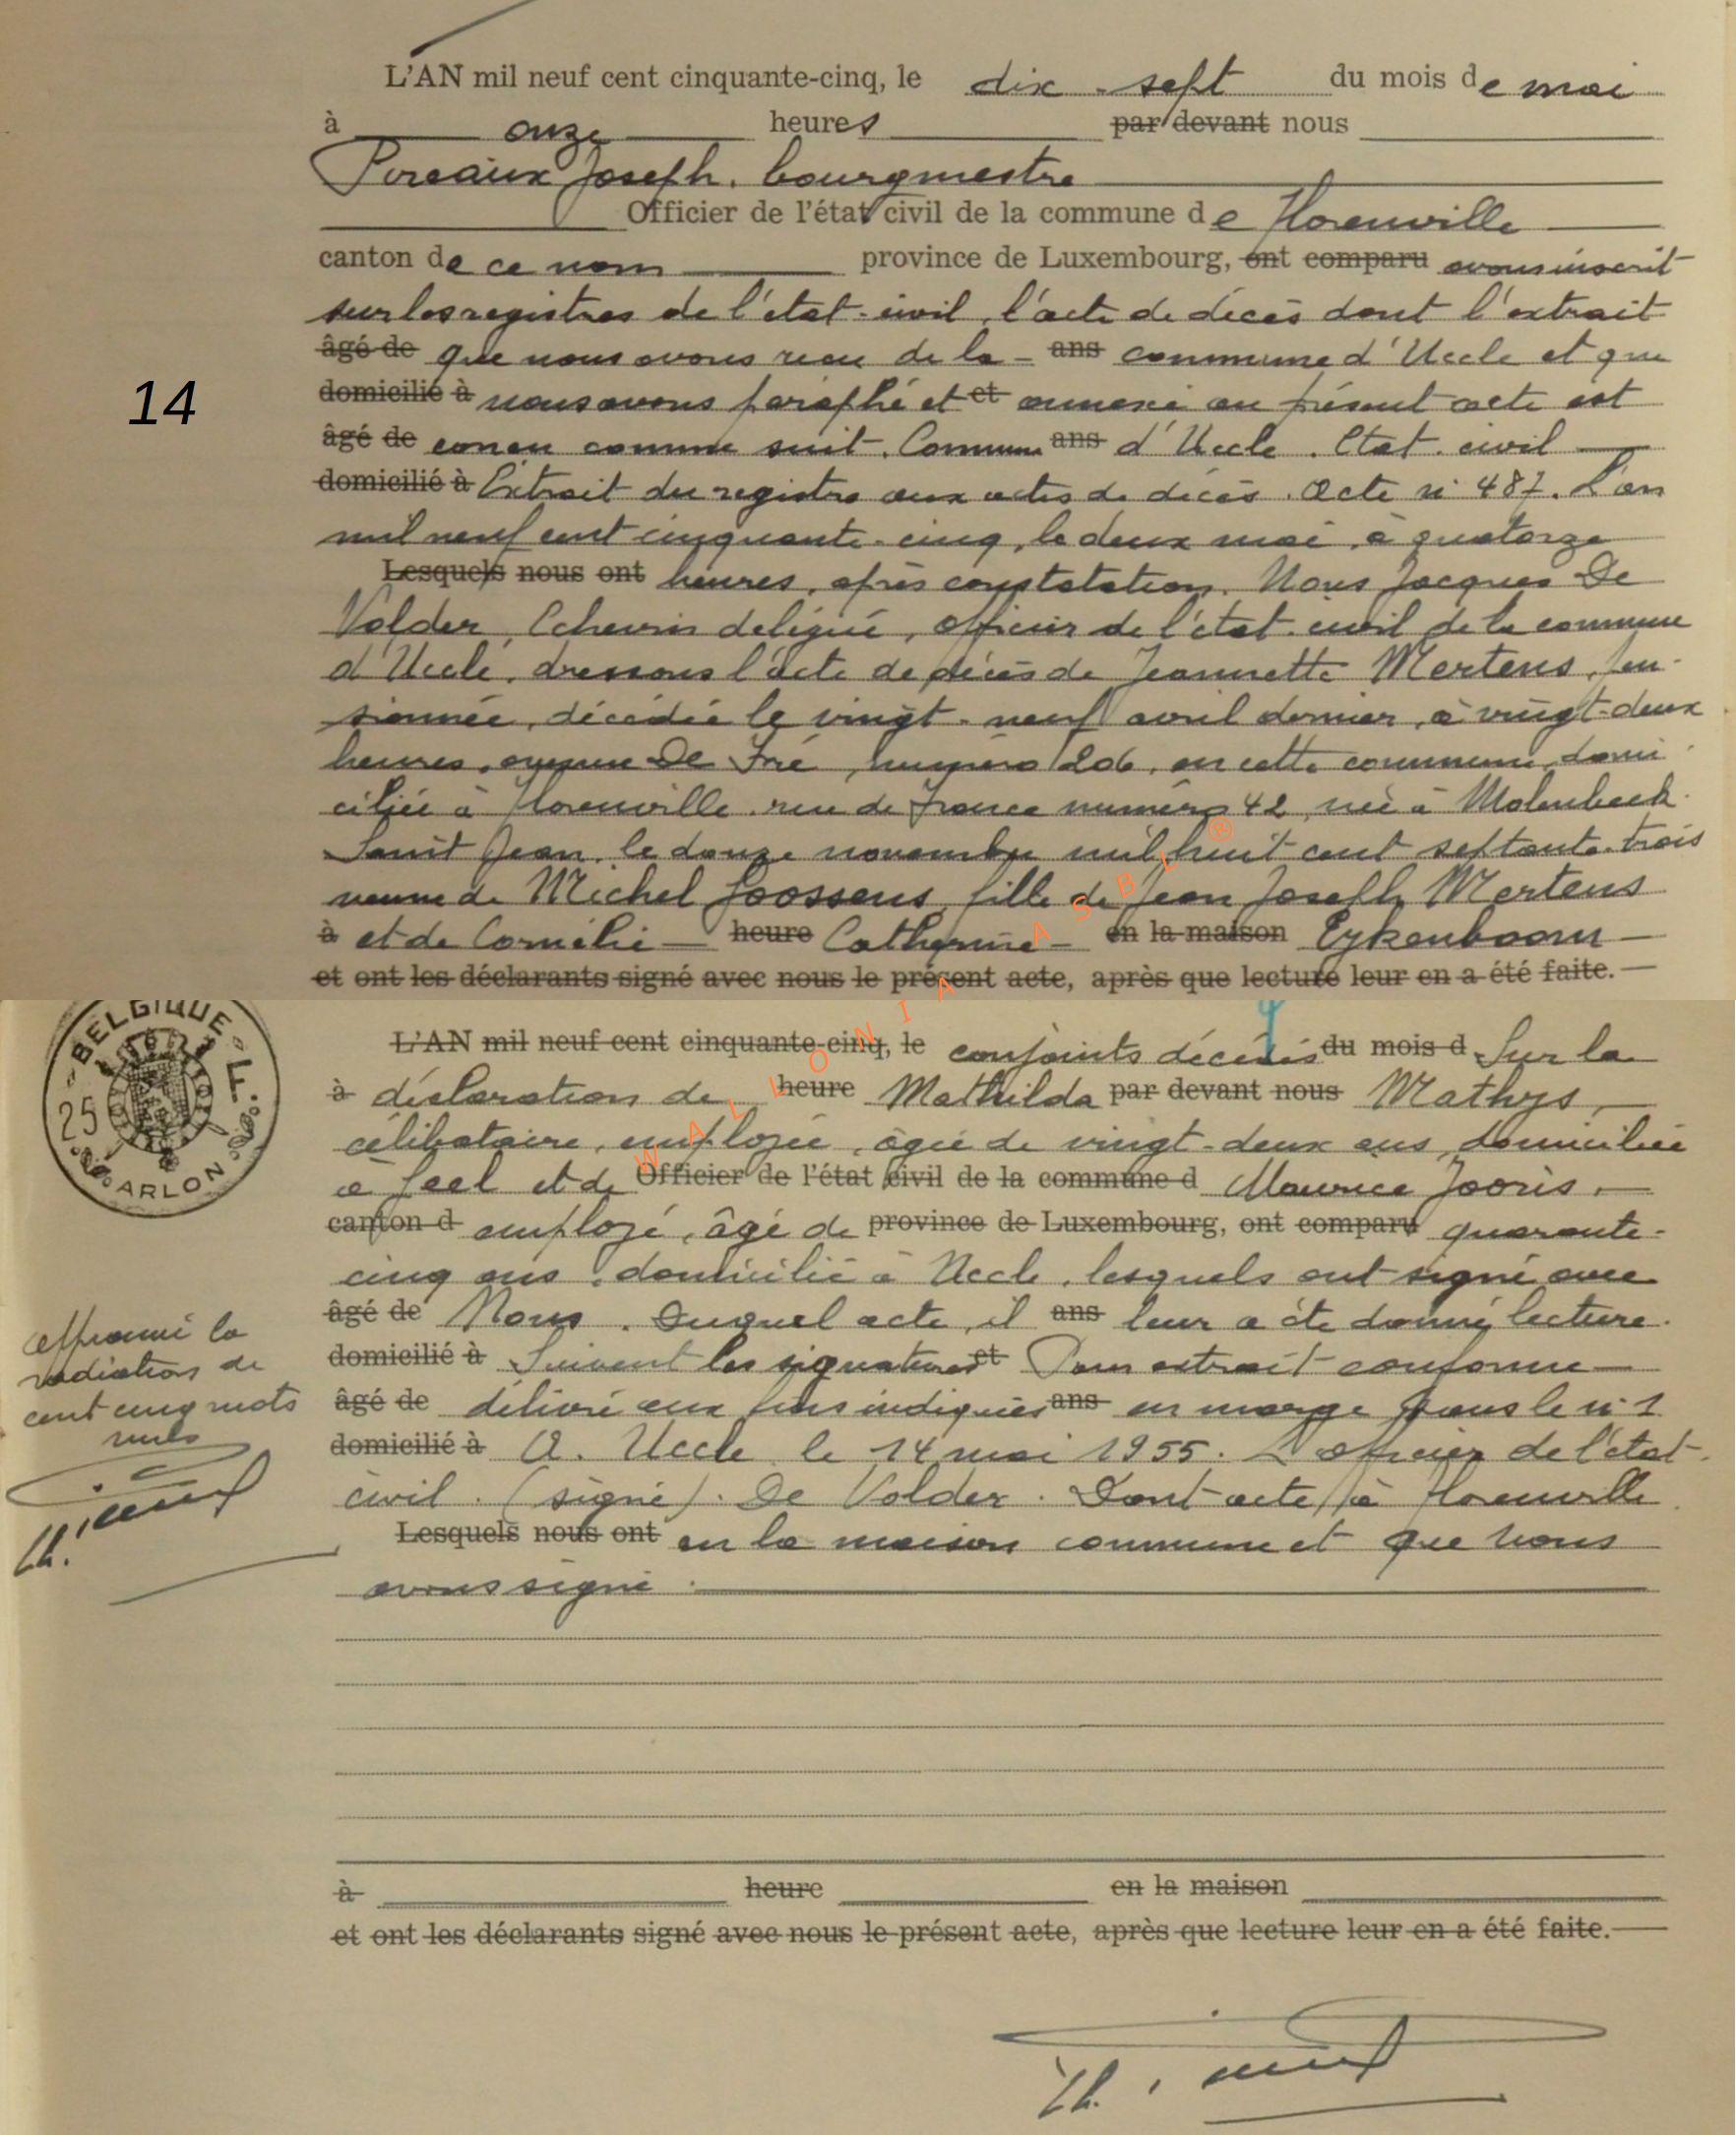 L'AN mil neuf cent cinquante-cinq, le dix-sept du mois de mai
à onze heures par devant nous
Pireaux Joseph, bourgmestre
Officier de l'état civil de la commune de Florenville
canton de ce nom province de Luxembourg, ont comparu avons inscrit
sur les registres de l'état-civil, l'acte de décès dont l'extrait
âgé de que nous avons reçu de la - ans commune d'Uccle et que
domicilié à nous avons paraphé et et annexé au présent acte est
14
âgé de conçu comme suit. Commune ans d'Uccle. Etat-civil
domicilié à Extrait du registre aux actes de décès. Acte n° 487. L'an
mil neuf cent cinquante-cinq, le deux mai, à quatorze
Lesquels nous ont heures, après constatation, Nous Jacques De
Volder, Echevin délégué, officier de l'état-civil de la commune
d'Uccle, dressons l'acte de décès de Jeannette Mertens, pen-
sionnée, décédée le vingt-neuf avril dernier, à vingt-deux
heures, avenue De Fré, numéro 206, en cette commune, domi-
ciliée à Florenville, rue de France numéro 42, née à Molenbeek-
Saint Jean, le douze novembre mil huit cent septante-trois
veuve de Michel Goossens, fille de Jean Joseph Mertens
à et de Cornélie - heure Catherine - en la maison Eykenboom -
et ont les déclarants signé avec nous le présent acte, après que lecture leur en a été faite.
WALLONIA ASBL ®
BELGIQUE
25 F.
ARLON
L'AN mil neuf cent cinquante-cinq, le conjoints décédés du mois d Sur la
à déclaration de heure Mathilda par devant nous Mathys,
célibataire, employée, âgée de vingt-deux ans, domiciliée
à Geel et de Officier de l'état civil de la commune d Maurice Jooris,
canton d employé, âgé de province de Luxembourg, ont comparu quarante-
cinq ans, domicilié à Uccle, lesquels ont signé avec
âgé de Nous. Duquel acte, il ans leur a été donné lecture.
domicilié à Suivent les signatures et Pour extrait conforme
âgé de délivré aux fins indiquées ans en marge sous le n° 1
domicilié à A. Uccle le 14 mai 1955. L'officier de l'état-
civil. (signé). De Volder. Dont acte, à Florenville
Lesquels nous ont en la maison commune et que nous
avons signé.
approuvé la
radiation de
cent cinq mots
nuls
à heure en la maison
et ont les déclarants signé avec nous le présent acte, après que lecture leur en a été faite.